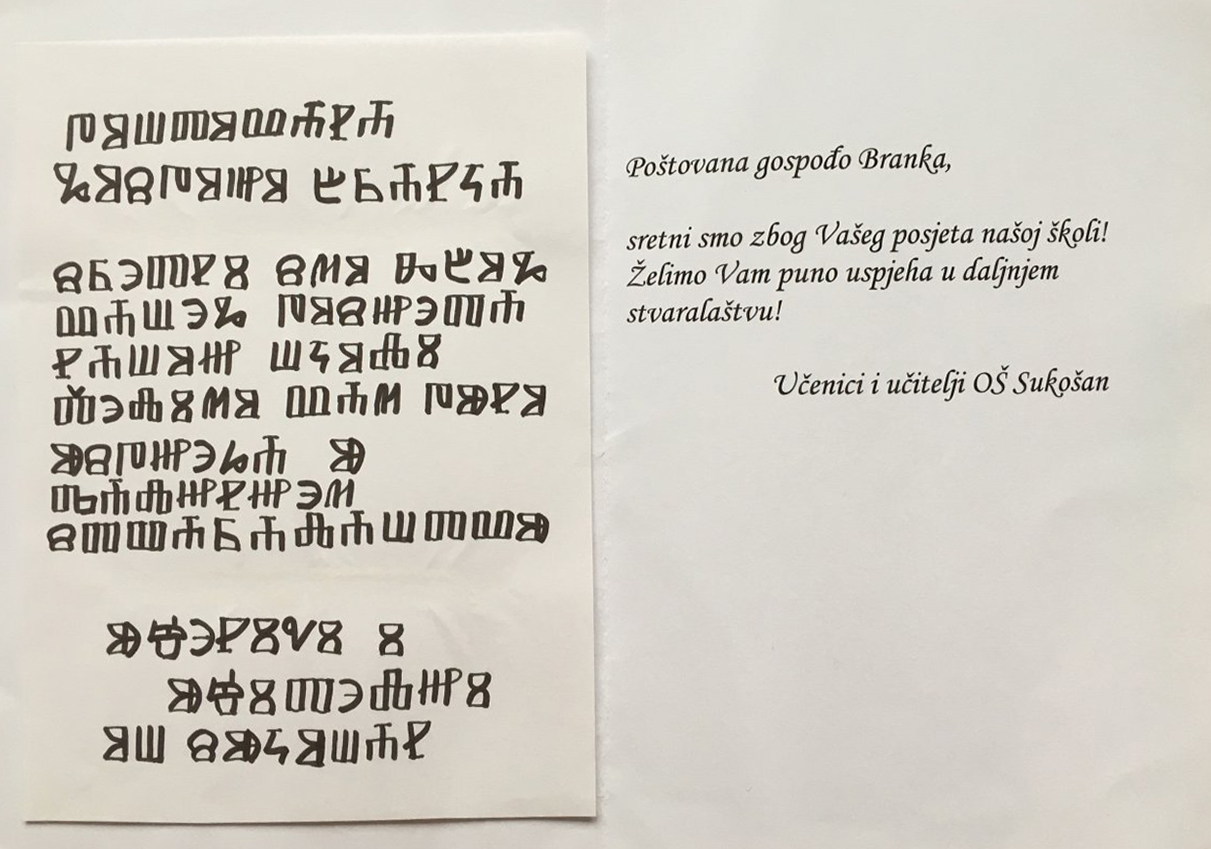 ⱂⱁⱎⱅⱁⰲⰰⱀⰰ
ⰳⱁⱄⱂⱁⰼⱁ ⰱⱃⰰⱀⰽⰰ
ⱄⱃⰵⱅⱀⰹ ⱄⰿⱁ ⰸⰱⱁⰳ
ⰲⰰⱎⰵⰳ ⱂⱁⱄⰼⰵⱅⰰ
ⱀⰰⱎⱁⰼ ⱎⰽⱁⰾⰹ
ⰶⰵⰾⰹⰿⱁ ⰲⰰⰿ ⱂⱆⱀⱁ
ⱆⱄⱂⰼⰵⱈⰰ ⱆ
ⰴⰰⰾⰼⱀⰼⰵⰿ
ⱄⱅⰲⰰⱃⰰⰾⰰⱎⱅⰲⱆ
ⱆⱍⰵⱀⰹⱌⰹ ⰹ
ⱆⱍⰹⱅⰵⰾⰼⰹ
ⱁⱎ ⱄⱆⰽⱁⱎⰰⱀ
Poštovana gospođo Branka,
sretni smo zbog Vašeg posjeta našoj školi!
Želimo Vam puno uspjeha u daljnjem
stvaralaštvu!
Učenici i učitelji OŠ Sukošan